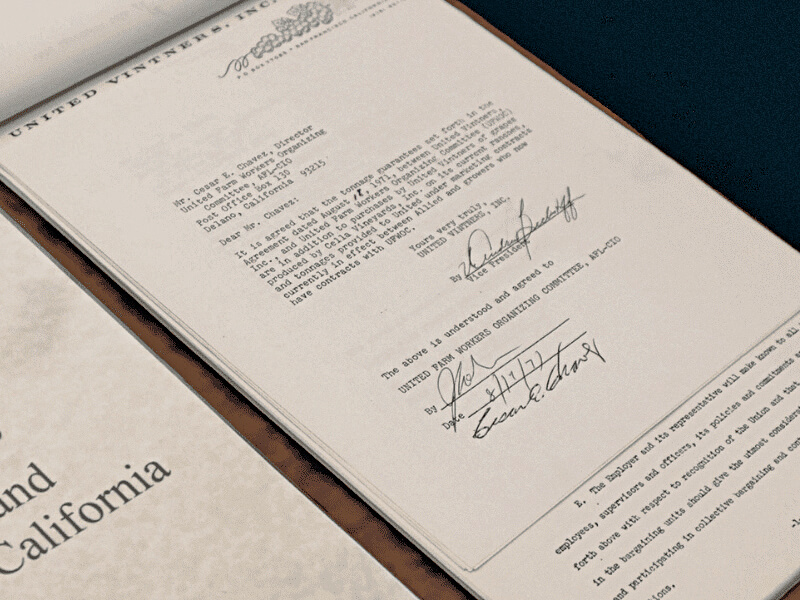 UNITED VINTNERS, INC.
Mr. Cesar E. Chavez, Director
United Farm Workers Organizing
Committee, AFL-CIO
Post Office Box 130
Delano, California 93215
Dear Mr. Chavez:
It is agreed that the tonnage guarantees set forth in the
Agreement dated August 18, 1971, between United Vintners,
Inc., and United Farm Workers Organizing Committee (UFWOC)
are in addition to purchases by United Vintners of grapes
produced by Cella Vineyards, Inc. on its current ranches,
and tonnages provided to United under marketing contracts
currently in effect between Allied and growers who now
have contracts with UFWOC.
Yours very truly,
UNITED VINTNERS, INC.
By
Vice President
The above is understood and agreed to
UNITED FARM WORKERS ORGANIZING COMMITTEE, AFL-CIO
By
Date 8/17/71
Cesar E. Chavez
E. The Employer and its representative will make known to all
employees, supervisors and officers, its policies and commitments
forth above with respect to recognition of the Union and that
in the bargaining units should give the utmost
and participating in collective bargaining and
und
California